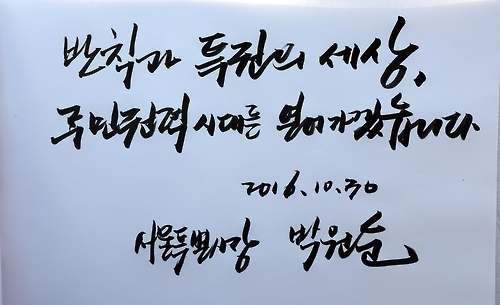 반칙과 특권의 세상,
국민권력 시대를 열어가겠습니다
2016.10.30
서울특별시장 박원순